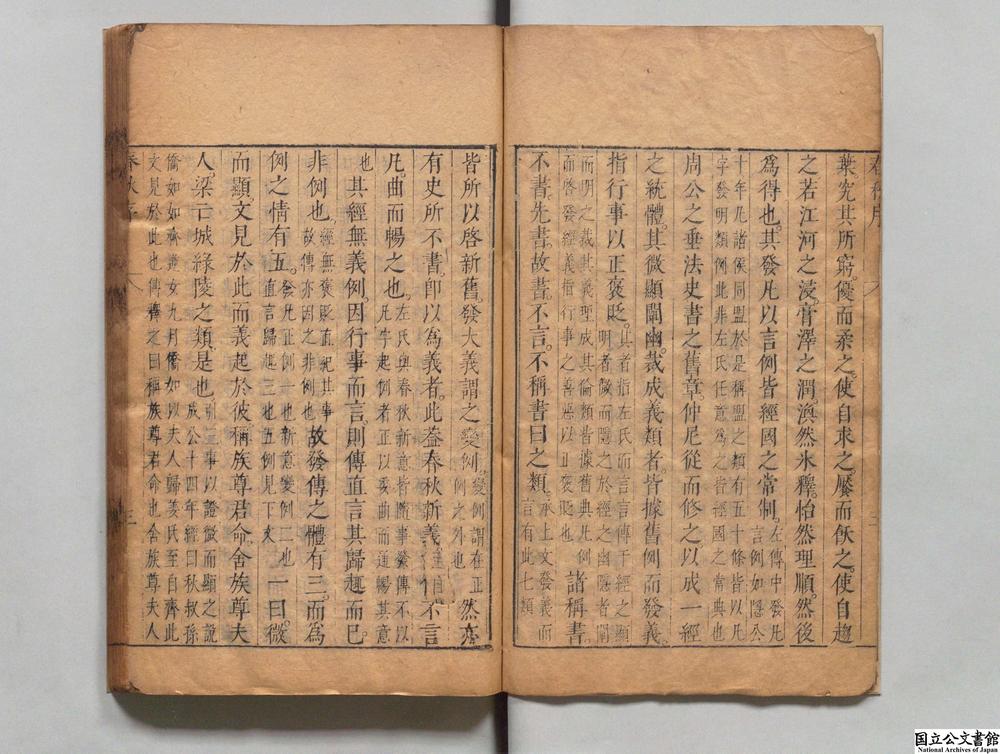 葉究其所窮優而柔之使自求之饜而飫之使自趨
之若江河之浸膏澤之潤渙然冰釋怡然理順然後
爲得也其發凡以言例皆經國之常制
左傳中發凡
言例如隱公
十年凡諸侯同盟於是稱盟之類有五十條皆以凡
字發明類例此非左氏任意爲之皆經國之常典也
周公之垂法史書之舊章仲尼從而修之以成一經
之統體其微顯闡幽裁成義類者皆據舊例而發義
指行事以正褒貶
其者指左氏而言言傳于經之顯
明者微而隱之於經之幽隱者闡
而明之裁其義理成其倫類皆據舊典凡例
而啓發經義指行事之善惡以正褒貶也
諸稱書
不書先書故書不言不稱書曰之類
承上文發義而
言有此七類
皆所以啓新舊發大義謂之變例
變例謂在正
例之外也
然亦
有史所不書即以爲義者此葢春秋新意
故傳不言
凡曲而暢之也
左氏與春秋新意皆隨事釋傳不以
凡字起例者正以委曲而通暢其意
也
其經無義例因行事而言則傳直言其歸趣而已
非例也
經無褒貶直紀其事
故傳亦因之非例也
故發傳之體有三而爲
例之情有五
發凡正例一也新意變例二也
行直言歸趣三也五例見下文
一曰微
而顯文見於此而義起於彼稱族尊君命舍族尊夫
人梁亡城緣陵之類是也
引三事以證微而顯之說
成公十四年經曰秋叔孫
僑如如齊逆女九月僑如以夫人歸姜氏至自齊此
文見於此也傳釋之曰稱族尊君命也舍族尊夫人
春秋序
三
国立公文書館
National Archives of Japan